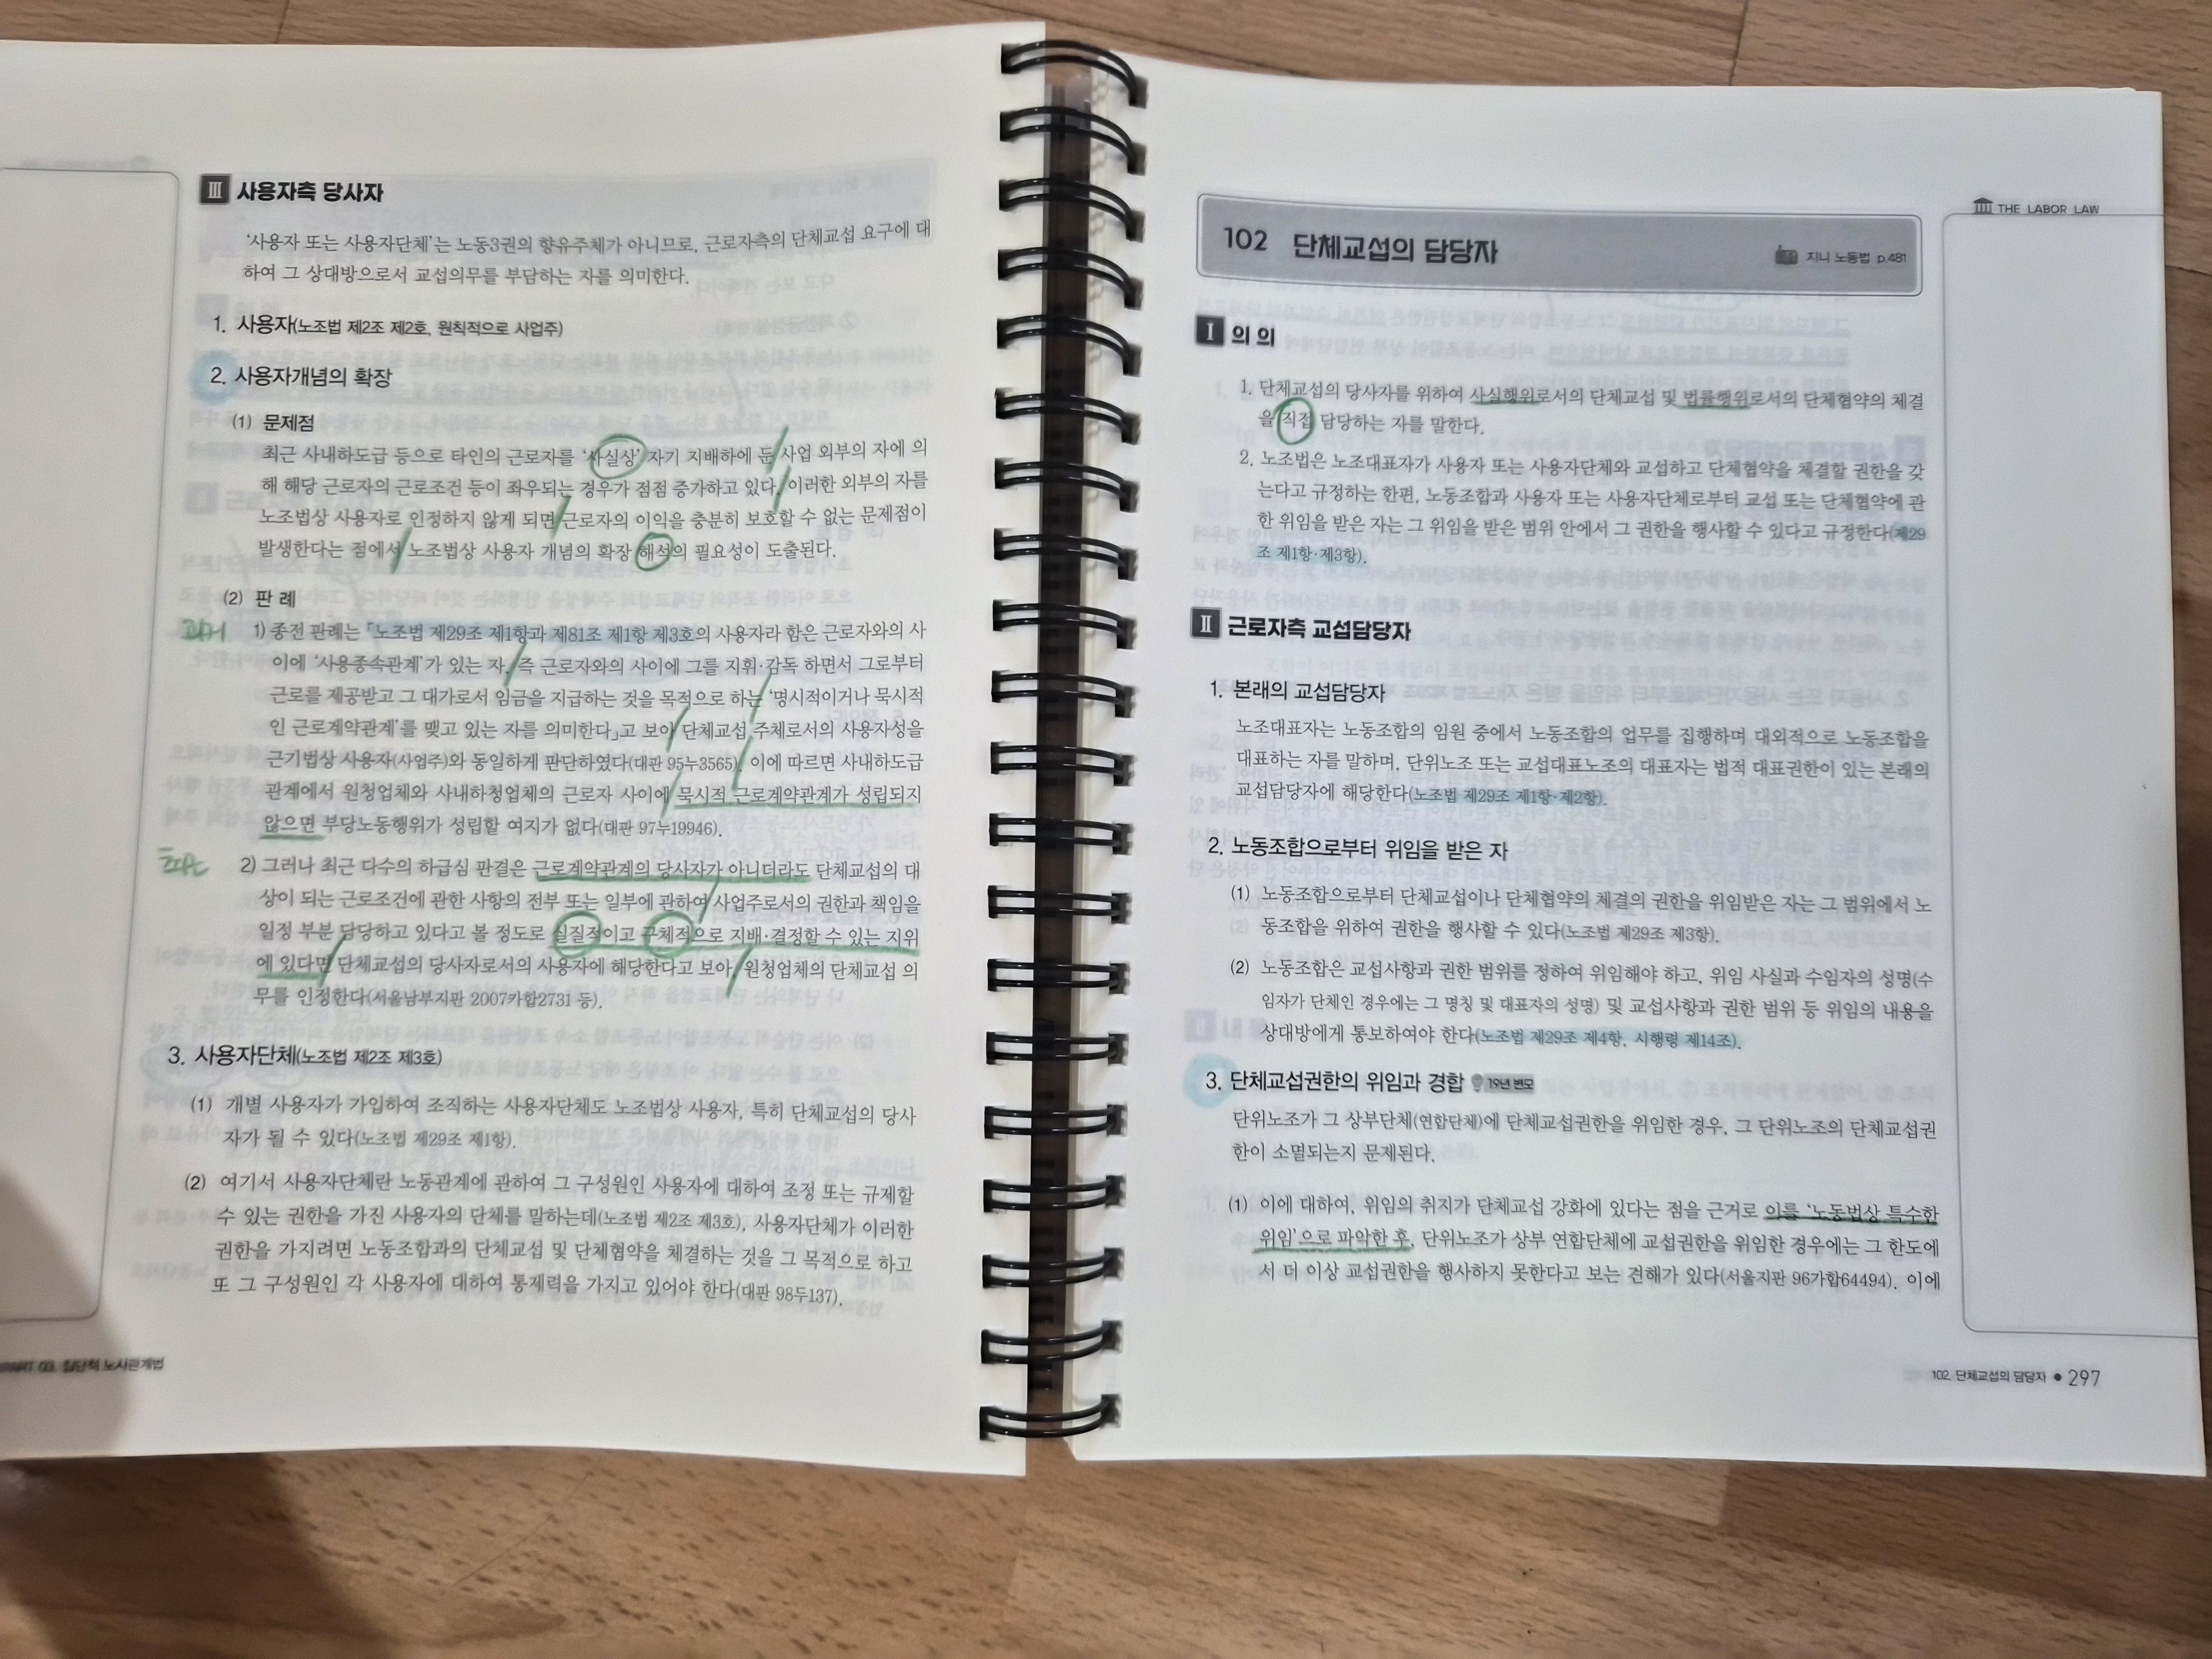 Ⅲ 사용자측 당사자
'사용자 또는 사용자단체'는 노동3권의 향유주체가 아니므로, 근로자측의 단체교섭 요구에 대
하여 그 상대방으로서 교섭의무를 부담하는 자를 의미한다.
1. 사용자(노조법 제2조 제2호, 원칙적으로 사업주)
2. 사용자개념의 확장
(1) 문제점
최근 사내하도급 등으로 타인의 근로자를 '사실상' 자기 지배하에 둔 사업 외부의 자에 의
해 해당 근로자의 근로조건 등이 좌우되는 경우가 점점 증가하고 있다. 이러한 외부의 자를
노조법상 사용자로 인정하지 않게 되면 근로자의 이익을 충분히 보호할 수 없는 문제점이
발생한다는 점에서 노조법상 사용자 개념의 확장 해석의 필요성이 도출된다.
(2) 판 례
과거 1) 종전 판례는 「노조법 제29조 제1항과 제81조 제1항 제3호의 사용자라 함은 근로자와의 사
이에 '사용종속관계'가 있는 자, 즉 근로자와의 사이에 그를 지휘·감독 하면서 그로부터
근로를 제공받고 그 대가로서 임금을 지급하는 것을 목적으로 하는 '명시적이거나 묵시적
인 근로계약관계'를 맺고 있는 자를 의미한다」고 보아 단체교섭 주체로서의 사용자성을
근기법상 사용자(사업주)와 동일하게 판단하였다(대판 95누3565). 이에 따르면 사내하도급
관계에서 원청업체와 사내하청업체의 근로자 사이에 묵시적 근로계약관계가 성립되지
않으면 부당노동행위가 성립할 여지가 없다(대판 97누19946).
최근 2) 그러나 최근 다수의 하급심 판결은 근로계약관계의 당사자가 아니더라도 단체교섭의 대
상이 되는 근로조건에 관한 사항의 전부 또는 일부에 관하여 사업주로서의 권한과 책임을
일정 부분 담당하고 있다고 볼 정도로 실질적이고 구체적으로 지배·결정할 수 있는 지위
에 있다면 단체교섭의 당사자로서의 사용자에 해당한다고 보아, 원청업체의 단체교섭 의
무를 인정한다(서울남부지판 2007카합2731 등).
3. 사용자단체(노조법 제2조 제3호)
(1) 개별 사용자가 가입하여 조직하는 사용자단체도 노조법상 사용자, 특히 단체교섭의 당사
자가 될 수 있다(노조법 제29조 제1항).
(2) 여기서 사용자단체란 노동관계에 관하여 그 구성원인 사용자에 대하여 조정 또는 규제할
수 있는 권한을 가진 사용자의 단체를 말하는데(노조법 제2조 제3호), 사용자단체가 이러한
권한을 가지려면 노동조합과의 단체교섭 및 단체협약을 체결하는 것을 그 목적으로 하고
또 그 구성원인 각 사용자에 대하여 통제력을 가지고 있어야 한다(대판 98두137).
PART 03. 집단적 노사관계법
THE LABOR LAW
102 단체교섭의 담당자 지니 노동법 p.481
Ⅰ 의 의
1. 단체교섭의 당사자를 위하여 사실행위로서의 단체교섭 및 법률행위로서의 단체협약의 체결
을 직접 담당하는 자를 말한다.
2. 노조법은 노조대표자가 사용자 또는 사용자단체와 교섭하고 단체협약을 체결할 권한을 갖
는다고 규정하는 한편, 노동조합과 사용자 또는 사용자단체로부터 교섭 또는 단체협약에 관
한 위임을 받은 자는 그 위임을 받은 범위 안에서 그 권한을 행사할 수 있다고 규정한다(제29
조 제1항·제3항).
Ⅱ 근로자측 교섭담당자
1. 본래의 교섭담당자
노조대표자는 노동조합의 임원 중에서 노동조합의 업무를 집행하며 대외적으로 노동조합을
대표하는 자를 말하며, 단위노조 또는 교섭대표노조의 대표자는 법적 대표권한이 있는 본래의
교섭담당자에 해당한다(노조법 제29조 제1항·제2항).
2. 노동조합으로부터 위임을 받은 자
(1) 노동조합으로부터 단체교섭이나 단체협약의 체결의 권한을 위임받은 자는 그 범위에서 노
동조합을 위하여 권한을 행사할 수 있다(노조법 제29조 제3항).
(2) 노동조합은 교섭사항과 권한 범위를 정하여 위임해야 하고, 위임 사실과 수임자의 성명(수
임자가 단체인 경우에는 그 명칭 및 대표자의 성명) 및 교섭사항과 권한 범위 등 위임의 내용을
상대방에게 통보하여야 한다(노조법 제29조 제4항, 시행령 제14조).
3. 단체교섭권한의 위임과 경합 19년 변모
단위노조가 그 상부단체(연합단체)에 단체교섭권한을 위임한 경우, 그 단위노조의 단체교섭권
한이 소멸되는지 문제된다.
(1) 이에 대하여, 위임의 취지가 단체교섭 강화에 있다는 점을 근거로 이를 '노동법상 특수한
위임'으로 파악한 후, 단위노조가 상부 연합단체에 교섭권한을 위임한 경우에는 그 한도에
서 더 이상 교섭권한을 행사하지 못한다고 보는 견해가 있다(서울지판 96가합64494). 이에
102. 단체교섭의 담당자 ● 297